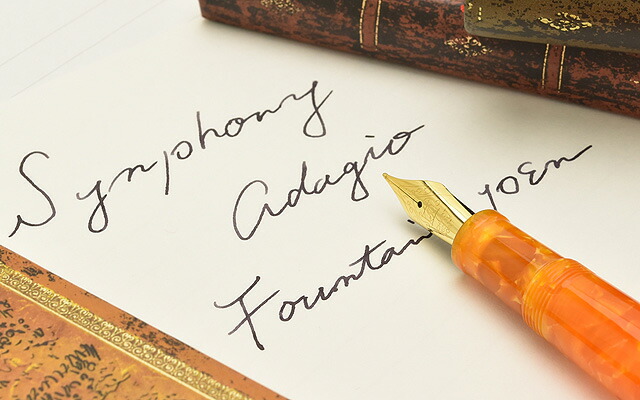 Symphony
Adagio
Fountain pen